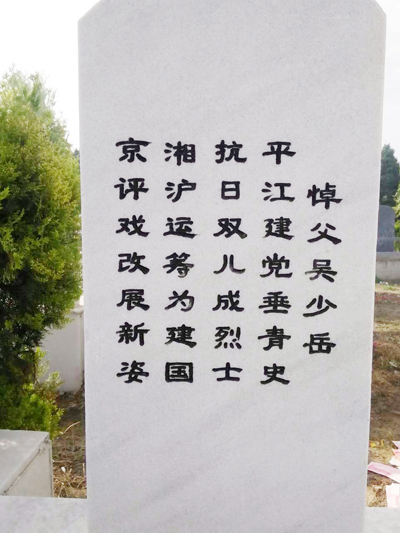 悼父吴少岳
平江建党垂青史
抗日双儿成烈士
湘沪运筹为建国
京评戏改展新姿